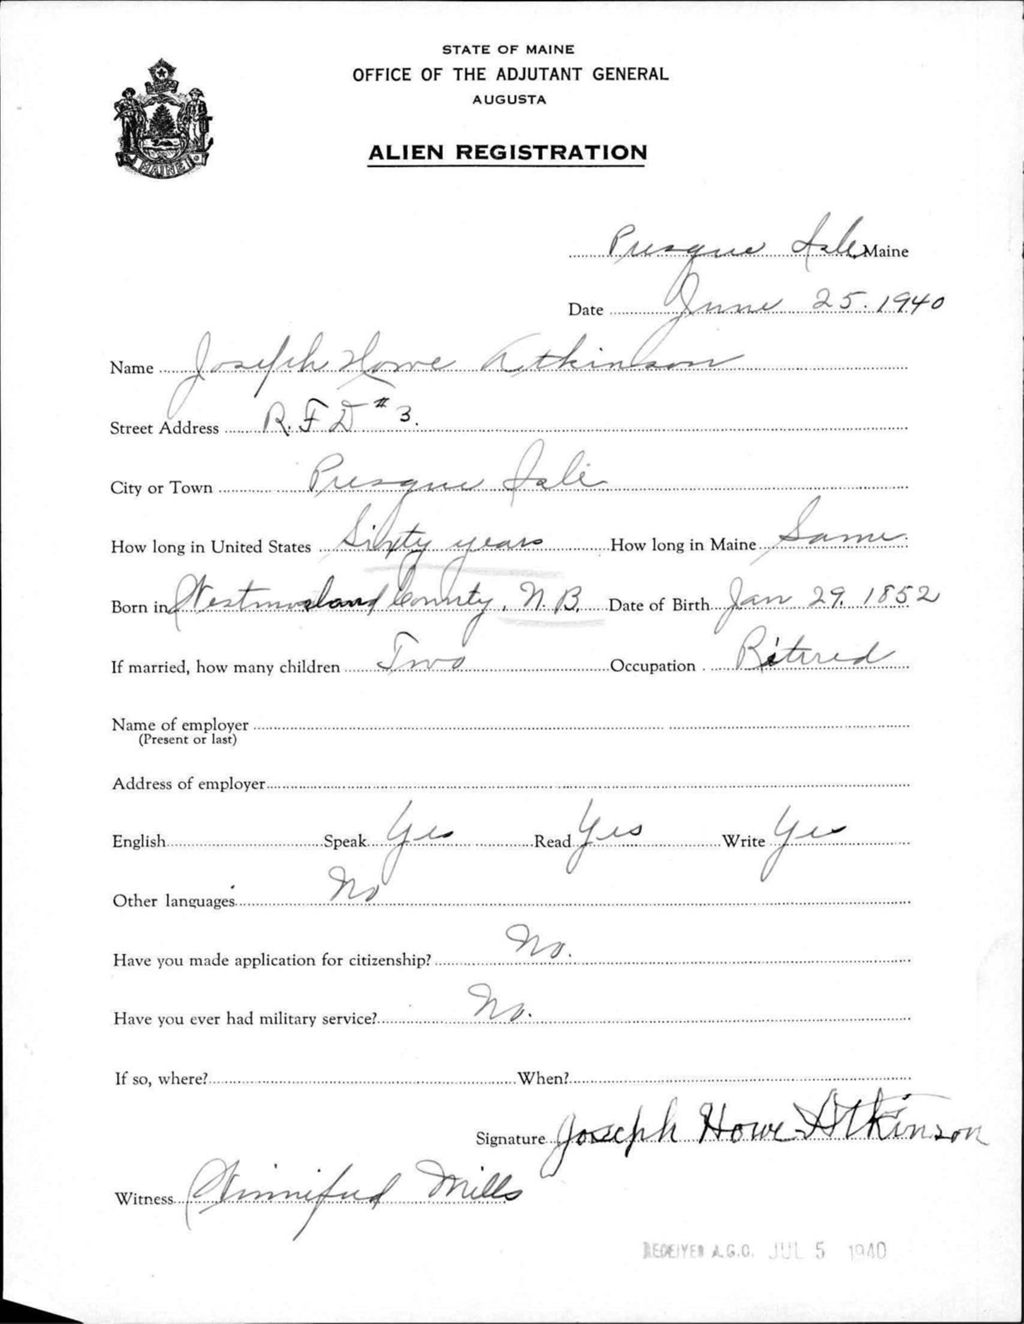 STATE OF MAINE
OFFICE OF THE ADJUTANT GENERAL
AUGUSTA
ALIEN REGISTRATION
MAINE
Presque Isle, Maine
Date June 25. 1940
Name Joseph Howe Atkinson
Street Address R. F D # 3.
City or Town Presque Isle
How long in United States Sixty years How long in Maine Same.
Born in Westmorland County, N. B. Date of Birth Jan 29. 1852
If married, how many children Two Occupation Retired
Name of employer
(Present or last)
Address of employer
English Speak Yes Read Yes Write Yes
Other languages No
Have you made application for citizenship? No.
Have you ever had military service? No.
If so, where? When?
Signature Joseph Howe Atkinson
Witness Winnifred Mills
RECEIVED A.G.O. JUL 5 1940